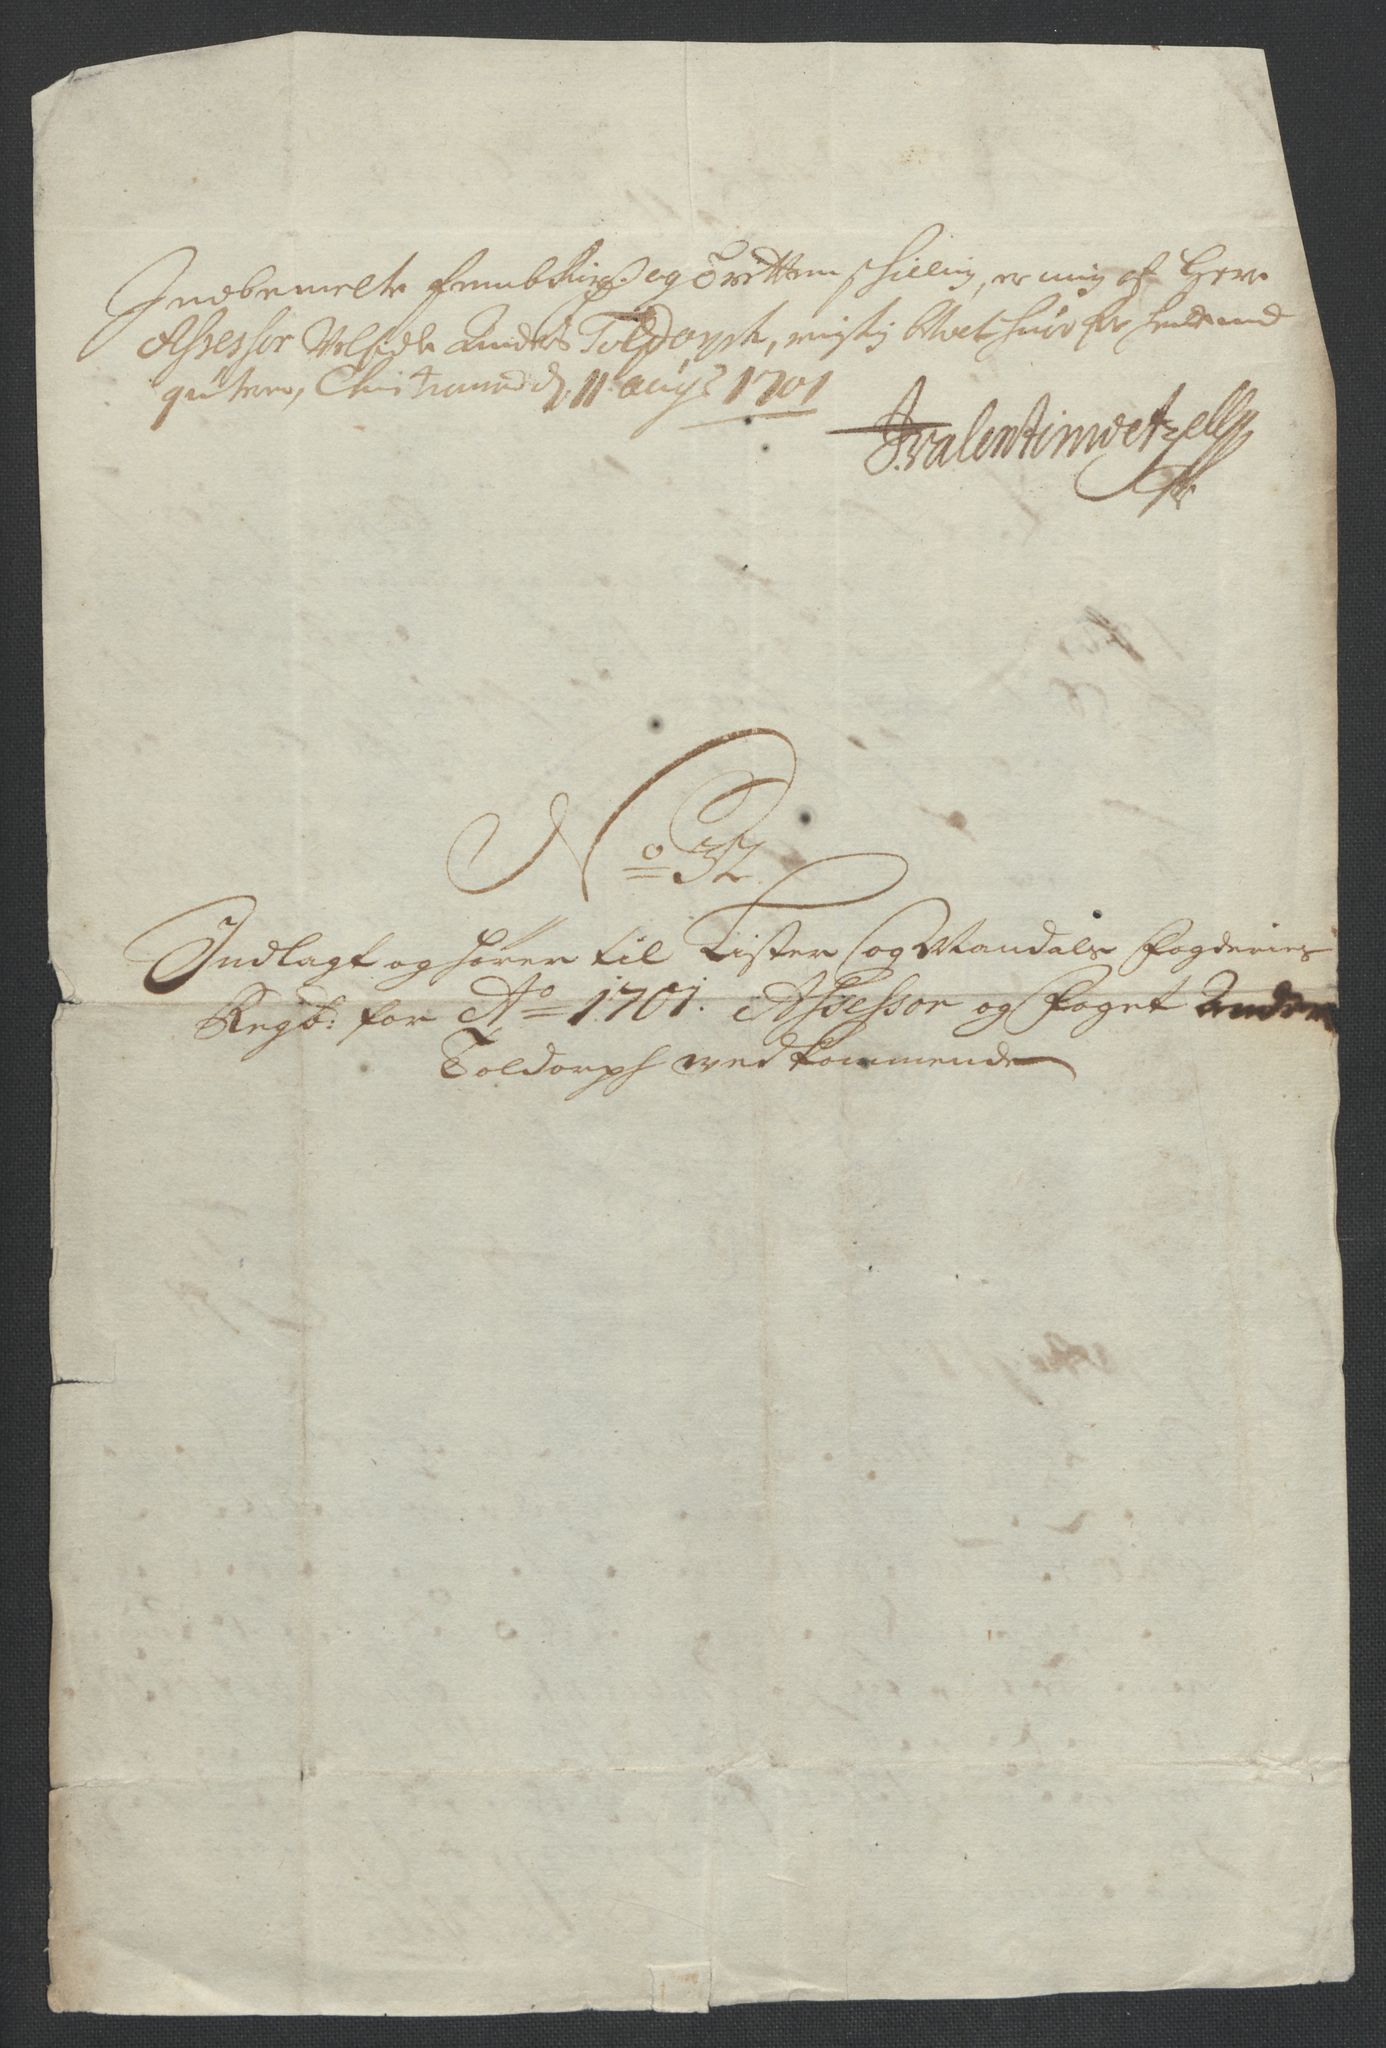 Indbemelte femb Rixdr. og Tretten schilling, er mig af Herr
Assessor Velædle Anders Toldorph, rigtig blevet for hermed
quitterer, Christiansand d. 11 augs 1701
J. Valentin Wetzell
No 32
Indlagt og hører til Lister og Mandals Fogderies
Regb: for Ao 1701. Assessor og Foget Anders
Toldorph wedkommende